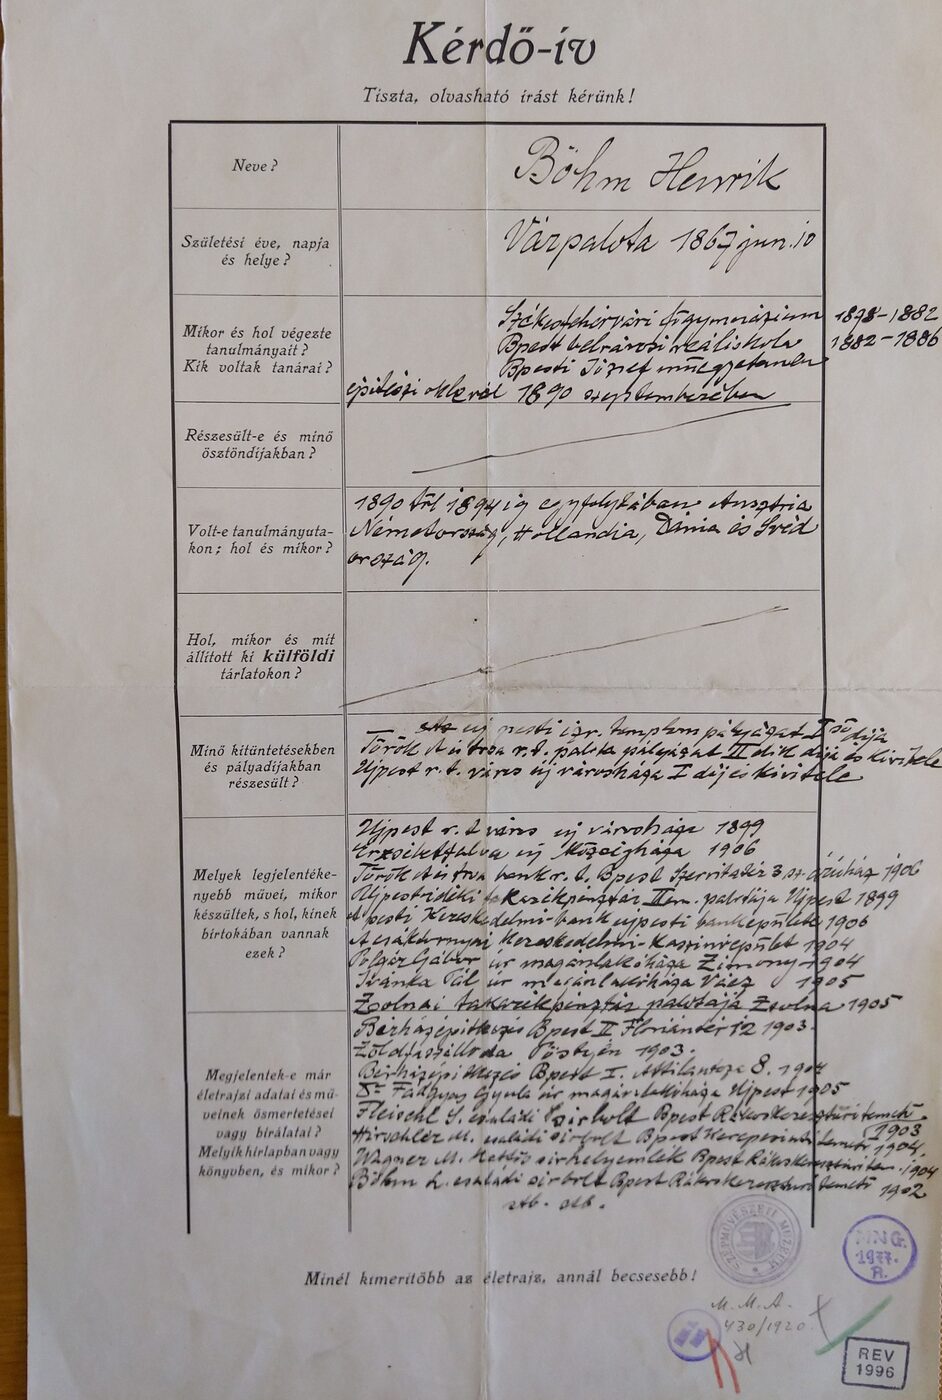 Kérdő-ív
Tiszta, olvasható írást kérünk!
Neve?
Böhm Henrik
Születési éve, napja
és helye?
Várpalota 1867 jun. 10
Mikor és hol végezte
tanulmányait?
Kik voltak tanárai?
Székesfehérvári főgymnázium 1878-1882
Bpest belvárosi reáliskola 1882-1886
Bpesti József műegyetemen
építészi oklevél 1890 szeptemberében
Részesült-e és minő
ösztöndíjakban?
Volt-e tanulmányuta-
kon; hol és mikor?
1890 től 1894 ig egyfolytában Ausztria
Németország, Hollandia, Dánia és Svéd
ország.
Hol, mikor és mit
állított ki külföldi
tárlatokon?
Minő kitüntetésekben
és pályadíjakban
részesült?
Az új pesti izr. templom pályázat I ső díja
Török A és tsa r.t. palota pályázat II dik díja és kivitele
Ujpest r.t. város új városháza I díj és kivitele
Melyek legjelentéke-
nyebb művei, mikor
készültek, s hol, kinek
birtokában vannak
ezek?
Ujpest r.t város új városháza 1899
Erzsébetfalva új Községháza 1906
Török A és tsa bank r.t. Bpest Szervitatér 3 sz. 1906
Ujpestvidéki takarékpénztár palotája Ujpest 1899
A pesti Kereskedelmi-bank ujpesti banképülete 1906
A csáktornyai Kereskedelmi-Kaszinóépület 1904
Polgár Gábor úr magánlakóháza Zimony 1904
Ivánka Pál úr magánlakóháza Vácz 1905
Zsolnai takarékpénztár palotája Zsolna 1905
Megjelentek-e már
életrajzi adatai és mű-
veinek ösmertetései
vagy birálatai?
Melyik hírlapban vagy
könyvben, és mikor?
Bérházépítkezés Bpest II Flórián tér 12 1903.
Zöldfa szálloda Pöstyén 1903.
Bérházépítkezés Bpest I. Attila utcza 8. 1904
Dr Gyula úr magánlakóháza Ujpest 1905
Fleischl S. családi sírbolt Bpest Rákoskeresztúri temető
1903
M. családi sírbolt Bpest Kerepesi uti temető 1904.
Wagner M. sírhelyemlék Bpest Rákoskeresztúri tem. 1904
Böhm L. családi sírbolt Bpest Rákoskeresztúri temető 1902
stb. stb.
Minél kimerítőbb az életrajz, annál becsesebb!
SZÉPMŰVÉSZETI MÚZEUM
MNG.
1977.
R.
M. M. A.
430/1920.
REV
1996